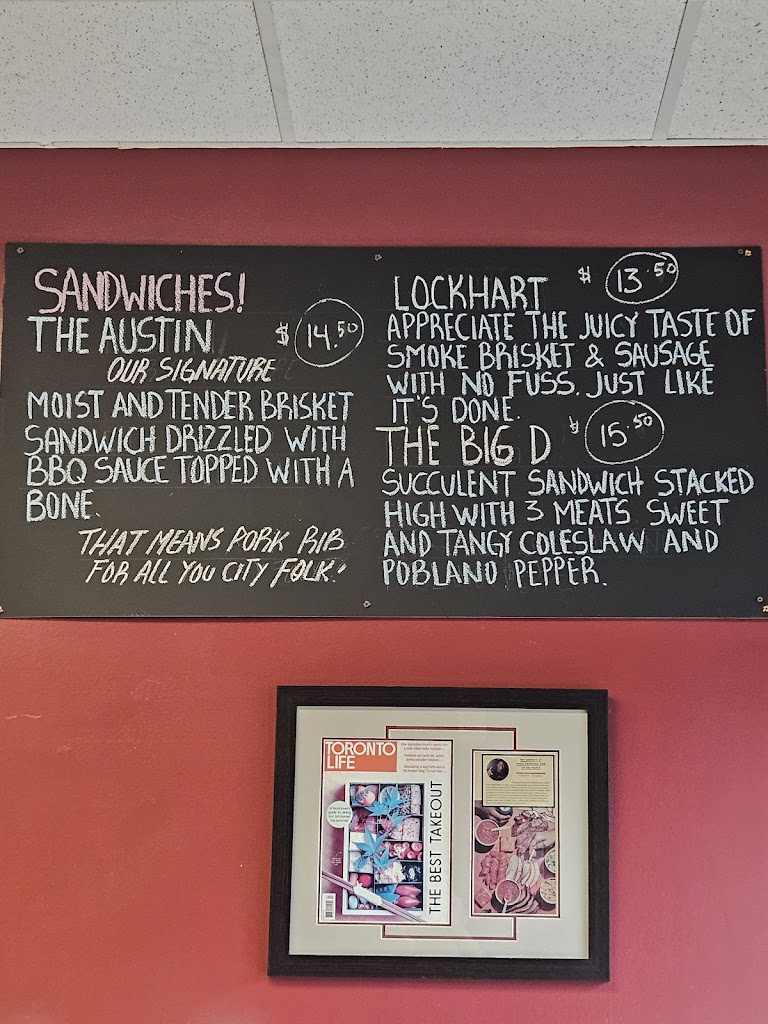 SANDWICHES!
THE AUSTIN $ 14.50
OUR SIGNATURE
MOIST AND TENDER BRISKET
SANDWICH DRIZZLED WITH
BBQ SAUCE TOPPED WITH A
BONE.
THAT MEANS PORK RIB
FOR ALL YOU CITY FOLK!
LOCKHART $ 13.50
APPRECIATE THE JUICY TASTE OF
SMOKE BRISKET & SAUSAGE
WITH NO FUSS. JUST LIKE
IT'S DONE.
THE BIG D $ 15.50
SUCCULENT SANDWICH STACKED
HIGH WITH 3 MEATS SWEET
AND TANGY COLESLAW AND
POBLANO PEPPER.
TORONTO
LIFE
THE BEST TAKEOUT